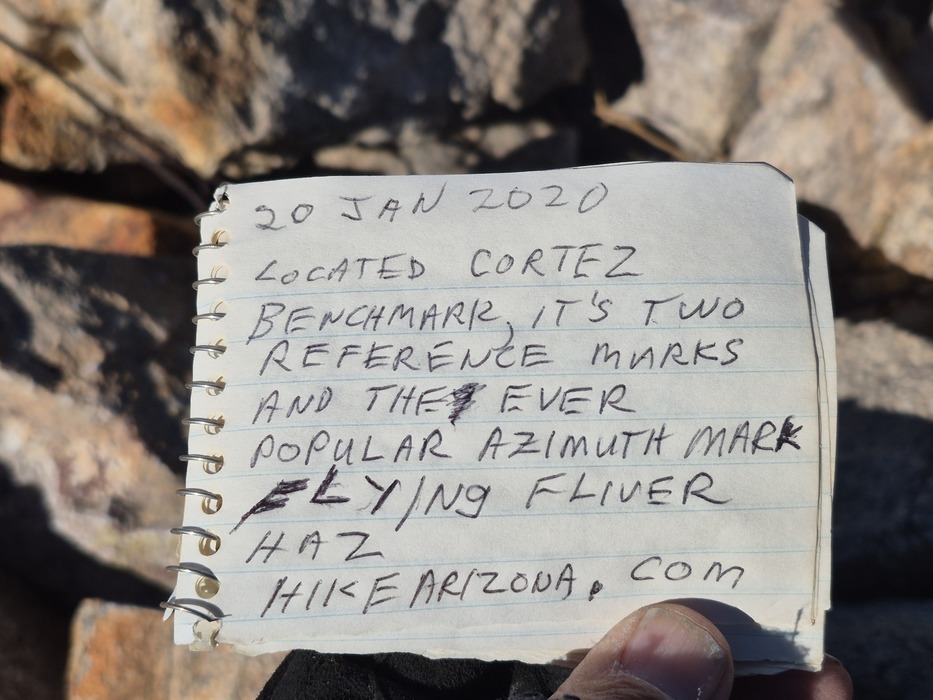 20 JAN 2020
LOCATED CORTEZ
BENCHMARK, IT'S TWO
REFERENCE MARKS
AND THE EVER
POPULAR AZIMUTH MARK
FLYING FLIVER
HAZ
HIKEARIZONA.COM